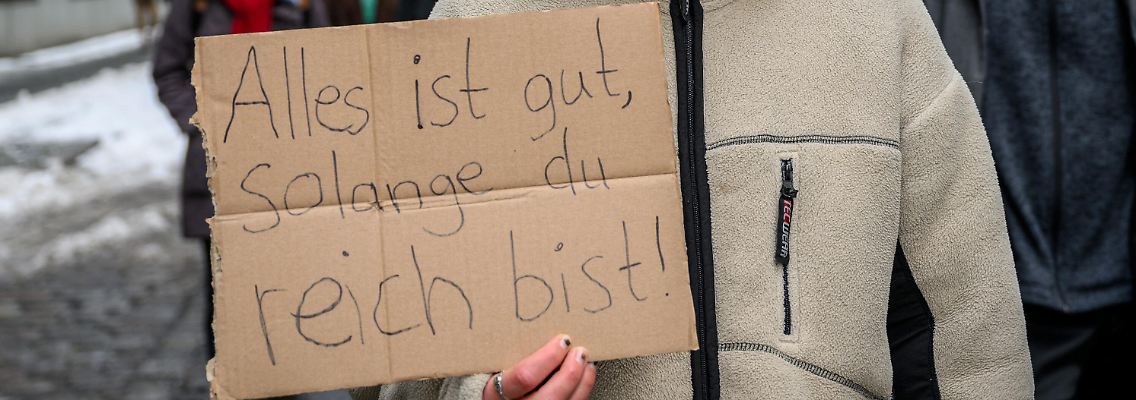 Alles ist gut,
solange du
reich bist!
TECWEAR